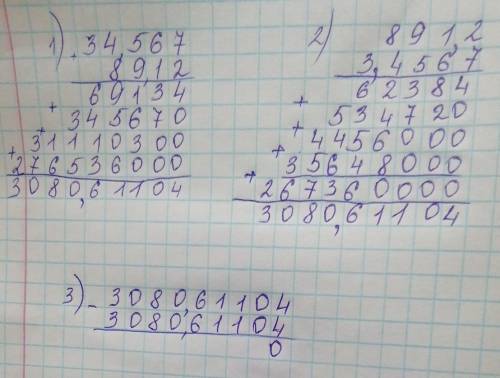 1) · 34,567
89,12
+ 69134
+ 345670
+ 31110300
+ 276536000
3080,61104
2) 891,2
3,4567
+ 62384
+ 534720
+ 4456000
+ 35648000
267360000
3080,61104
3) - 3080,61104
3080,61104
0